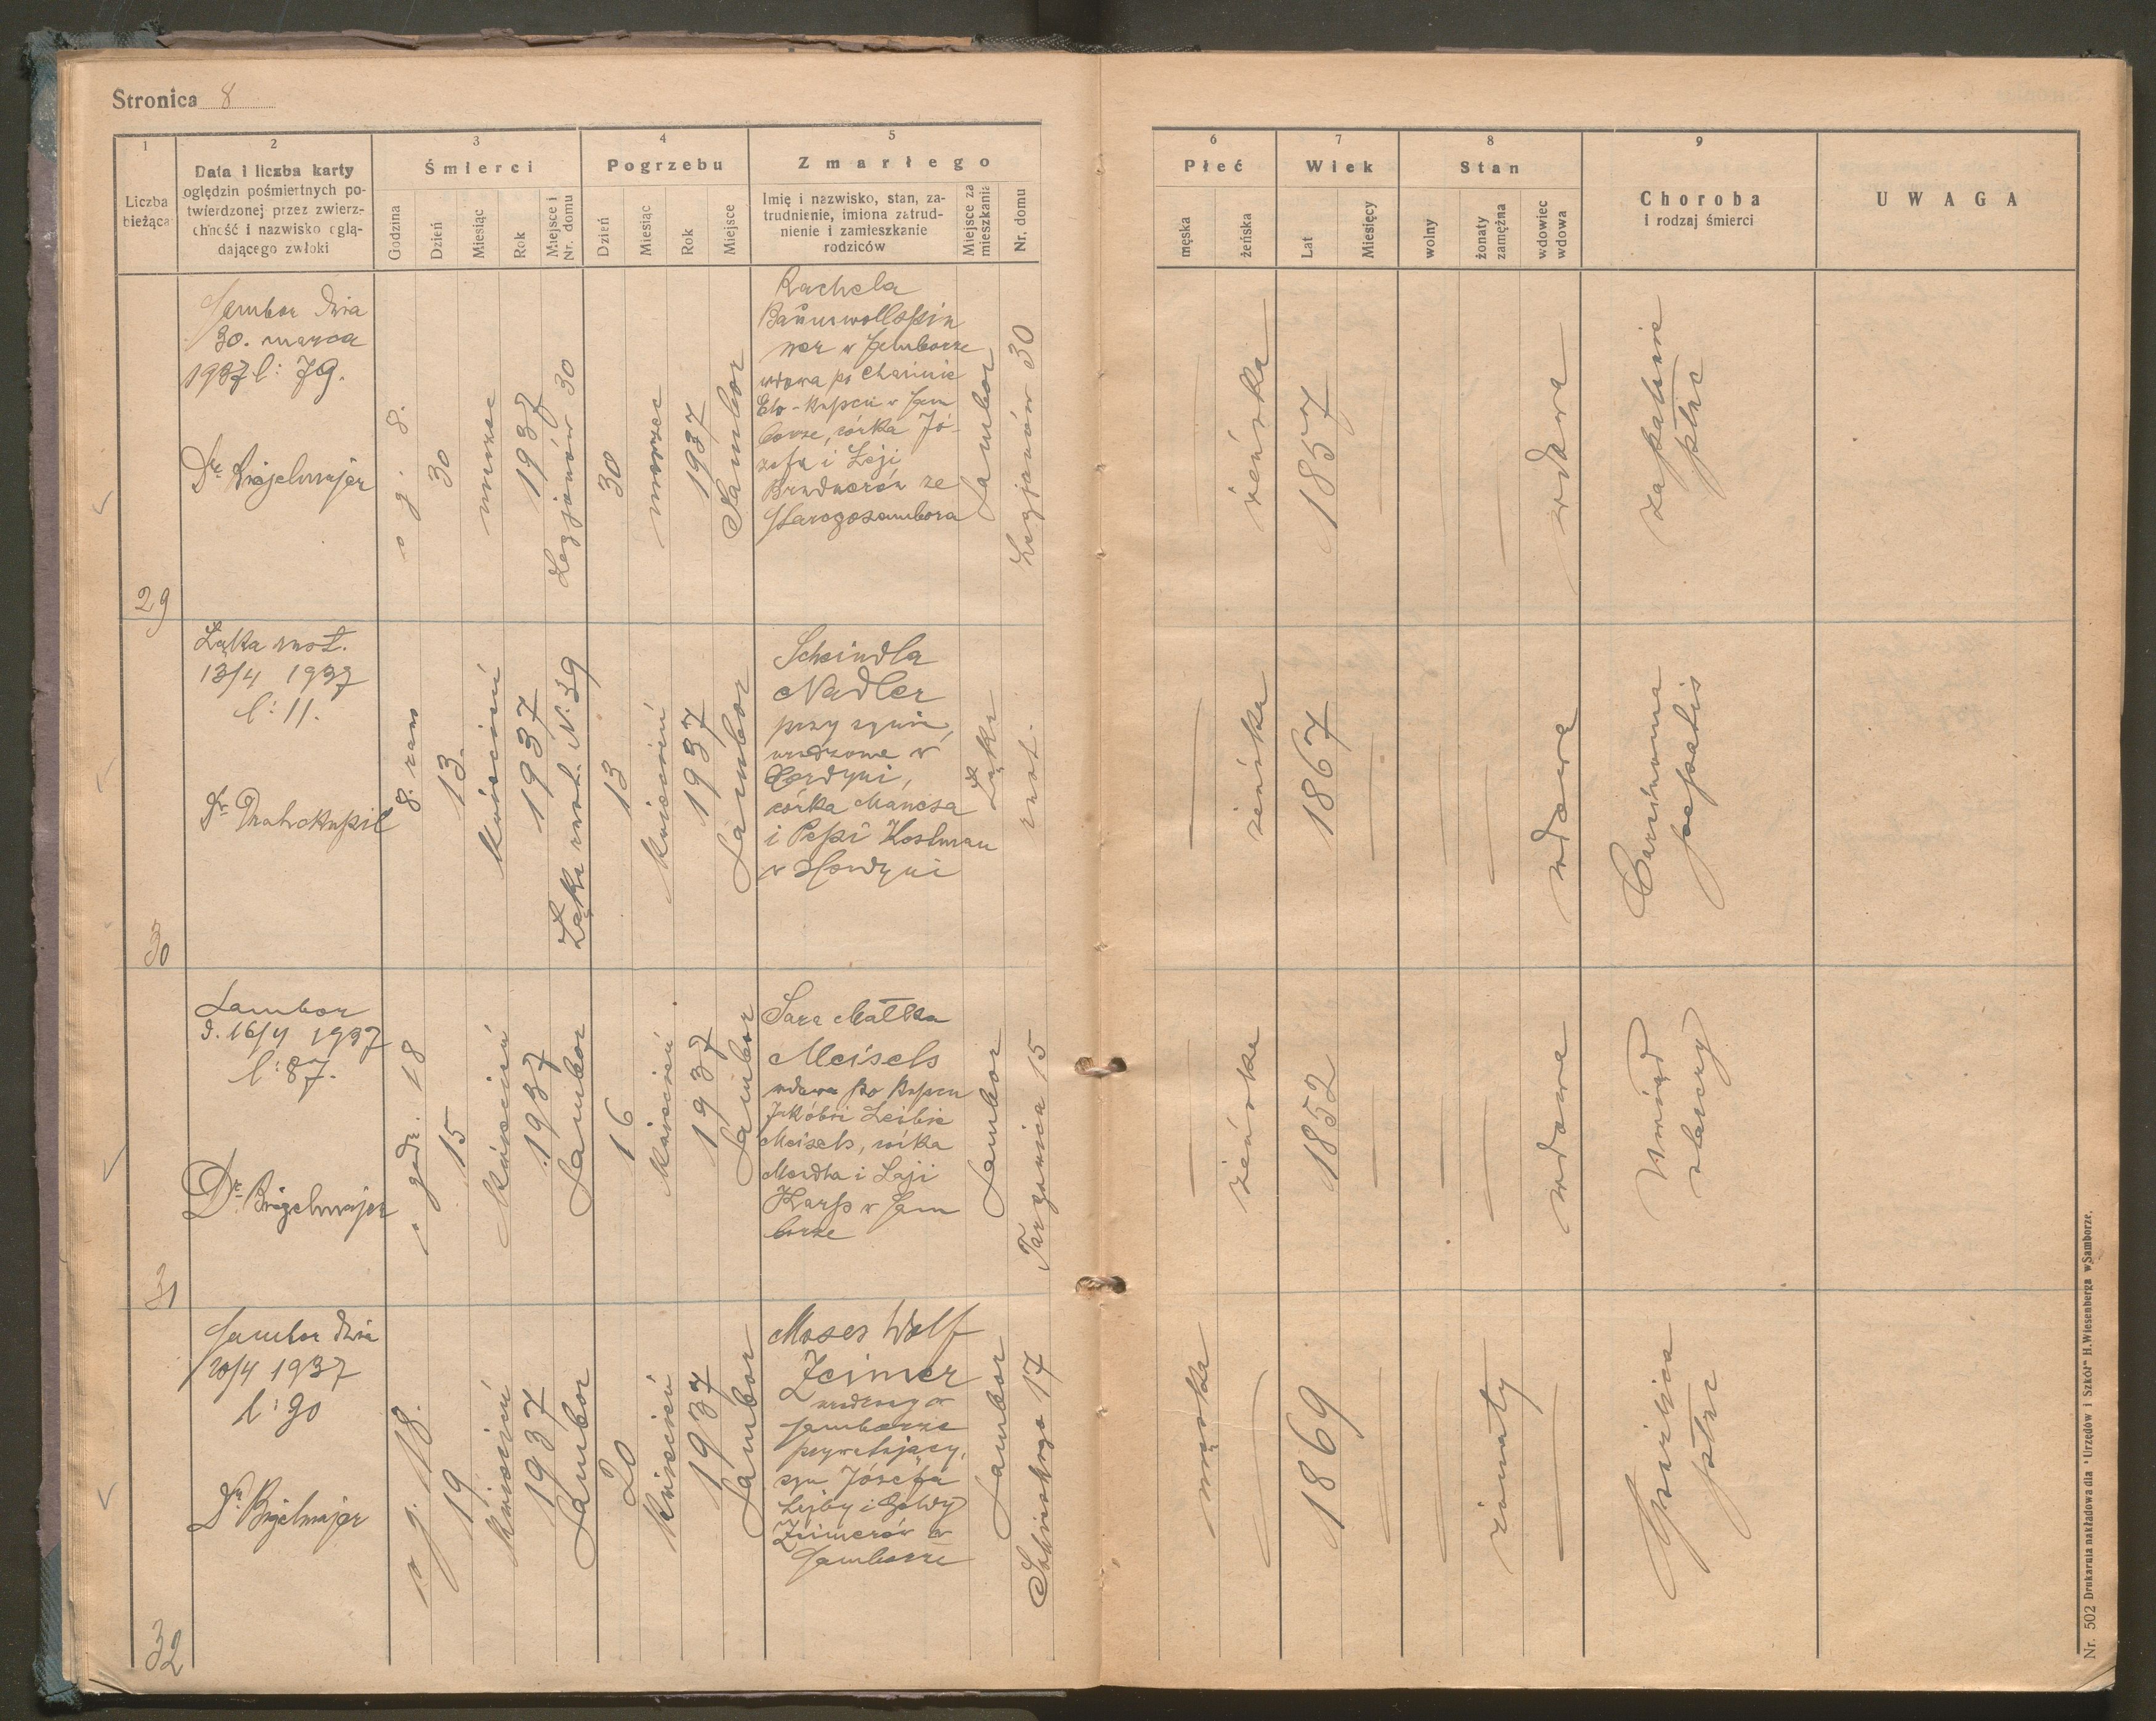 Stronica 8
1
Liczba
bieżąca
2
Data i liczba karty
oględzin pośmiertnych po-
twierdzonej przez zwierz-
chność i nazwisko oglą-
dającego zwłoki
3
Śmierci
Godzina
Dzień
Miesiąc
Rok
Miejsce i
Nr. domu
4
Pogrzebu
Dzień
Miesiąc
Rok
Miejsce
5
Zmarłego
Imię i nazwisko, stan, za-
trudnienie, imiona zatrud-
nienie i zamieszkanie
rodziców
Miejsce za
mieszkania
Nr. domu
6
Płeć
męska
żeńska
7
Wiek
Lat
Miesięcy
8
Stan
wolny
żonaty
zamężna
wdowiec
wdowa
9
Choroba
i rodzaj śmierci
UWAGA
29
Sambor dnia
30. marca
1937 l: 79.
o g. 8.
30
marzec
1937
Legjonów 30
30
marzec
1937
Sambor
Rachela
Baumwollspin
ner w Samborze
wdowa po Chaimie
kupcu w Sam
borze, córka Jó-
zefa i Leji
ze
Starogosambora
Sambor
Legjonów 30
żeńska
1857
wdowa
zapalenie
płuc
30
Łąka rust.
13/4 1937
l: 11.
8. rano
13.
kwiecień
1937
Łąka rust. N. 39
13
kwiecień
1937
Sambor
Scheindla
Nadler
przy synie,
urodzona w
córka Manesa
i Pepi Kostman
w Hordyni
Łąka
rust.
żeńska
1867
wdowa
Carcinoma
hepatis
31
Sambor
d. 16/4 1937
l: 87.
Dr. Bigelmajer
o godz. 18
15
kwiecień
1937
Sambor
16
kwiecień
1937
Sambor
Sara Małka
Meisels
wdowa po kupcu
Jakóbie Leibie
Meisels, córka
i Laji
Karp w Sam
borze
Sambor
Targowica 15
żeńska
1852
wdowa
Uwiąd
starczy
32
Sambor dnia
20/4 1937
l: 90
Dr. Bigelmajer
o g. 18.
19
kwiecień
1937
Sambor
20
kwiecień
1937
Sambor
Moses Wolf
Zeimer
urodzony w
Samborze
prywatyzujący,
syn Józefa
Lejby i Goldy
Zeimerów w
Samborze
Sambor
Sobieskiego 17
męska
1869
żonaty
płuc
Nr. 502 Drukarnia nakładowa dla "Urzędów i Szkół" H. Wiesenberga w Samborze.